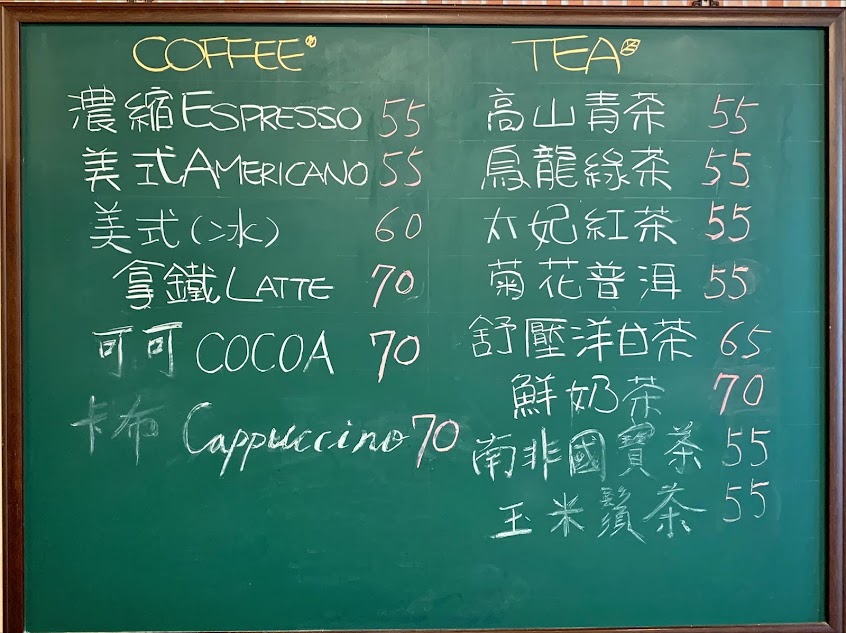 COFFEE
濃縮ESPRESSO 55
美式AMERICANO 55
美式(冰) 60
拿鐵LATTE 70
可可COCOA 70
卡布Cappuccino 70
TEA
高山青茶 55
烏龍綠茶 55
太妃紅茶 55
菊花普洱 55
舒壓洋甘茶 65
鮮奶茶 70
南非國寶茶 55
玉米鬚茶 55